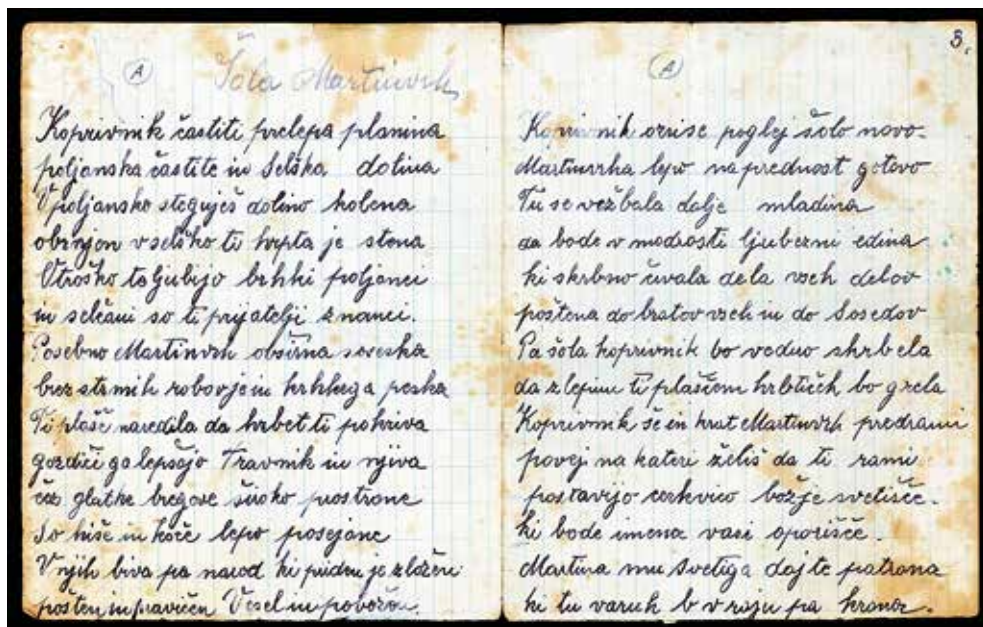 A
Šola Martinvrh
Koprivnik častiti prelepa planina
poljanska častite in Selška dolina
V poljansko steguješ dolino kolena
obrnjen v selško ti hrpta je stena
Otroško te ljubijo brhki poljanci
in selčani so ti prijatelji znanci.
Posebno Martinvrh obširna soseska
brez strmih robov je in krhkega peska
Ti plašč naredila da hrbet ti pokriva
gozdiči ga lepšajo Travnik in njiva
čez glatke bregove široko prostrone
So hiše in koče lepo posejane
V njih biva pa narod ki priden je zložen
pošten in pravičen Vesel in pobožen.
3.
A
Koprivnik ozrise poglej šolo novo.
Martinvrha lepo naprednost gotovo
Tu se vežbala dalje mladina
da bode v modrosti ljubezni edina
ki skrbno čuvala dela vseh delov
poštena do bratov vseh in do Sosedov
Pa šola koprivnik bo vedno skrbela
da z lepim ti plaščem hrbtiček bo grela
Koprivnik še in krat Martinvrh predrami
povej na kateri želiš da ti rami
postavijo cerkvico božje svetišče.
ki bode imena vasi oporišče.
Martina mu Svetiga dajte patrona
ki tu varuh b v raju pa krona.